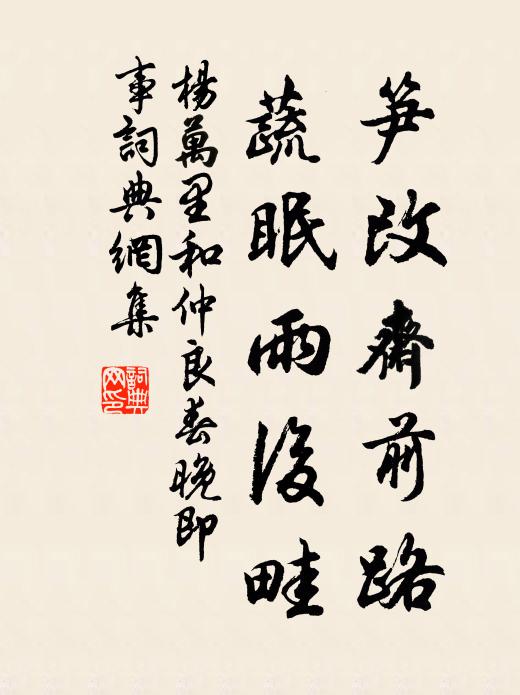 笋改齋前路
蔬眠雨後畦
楊萬里和仲良春晚即
事詞典網集
詞典
网印